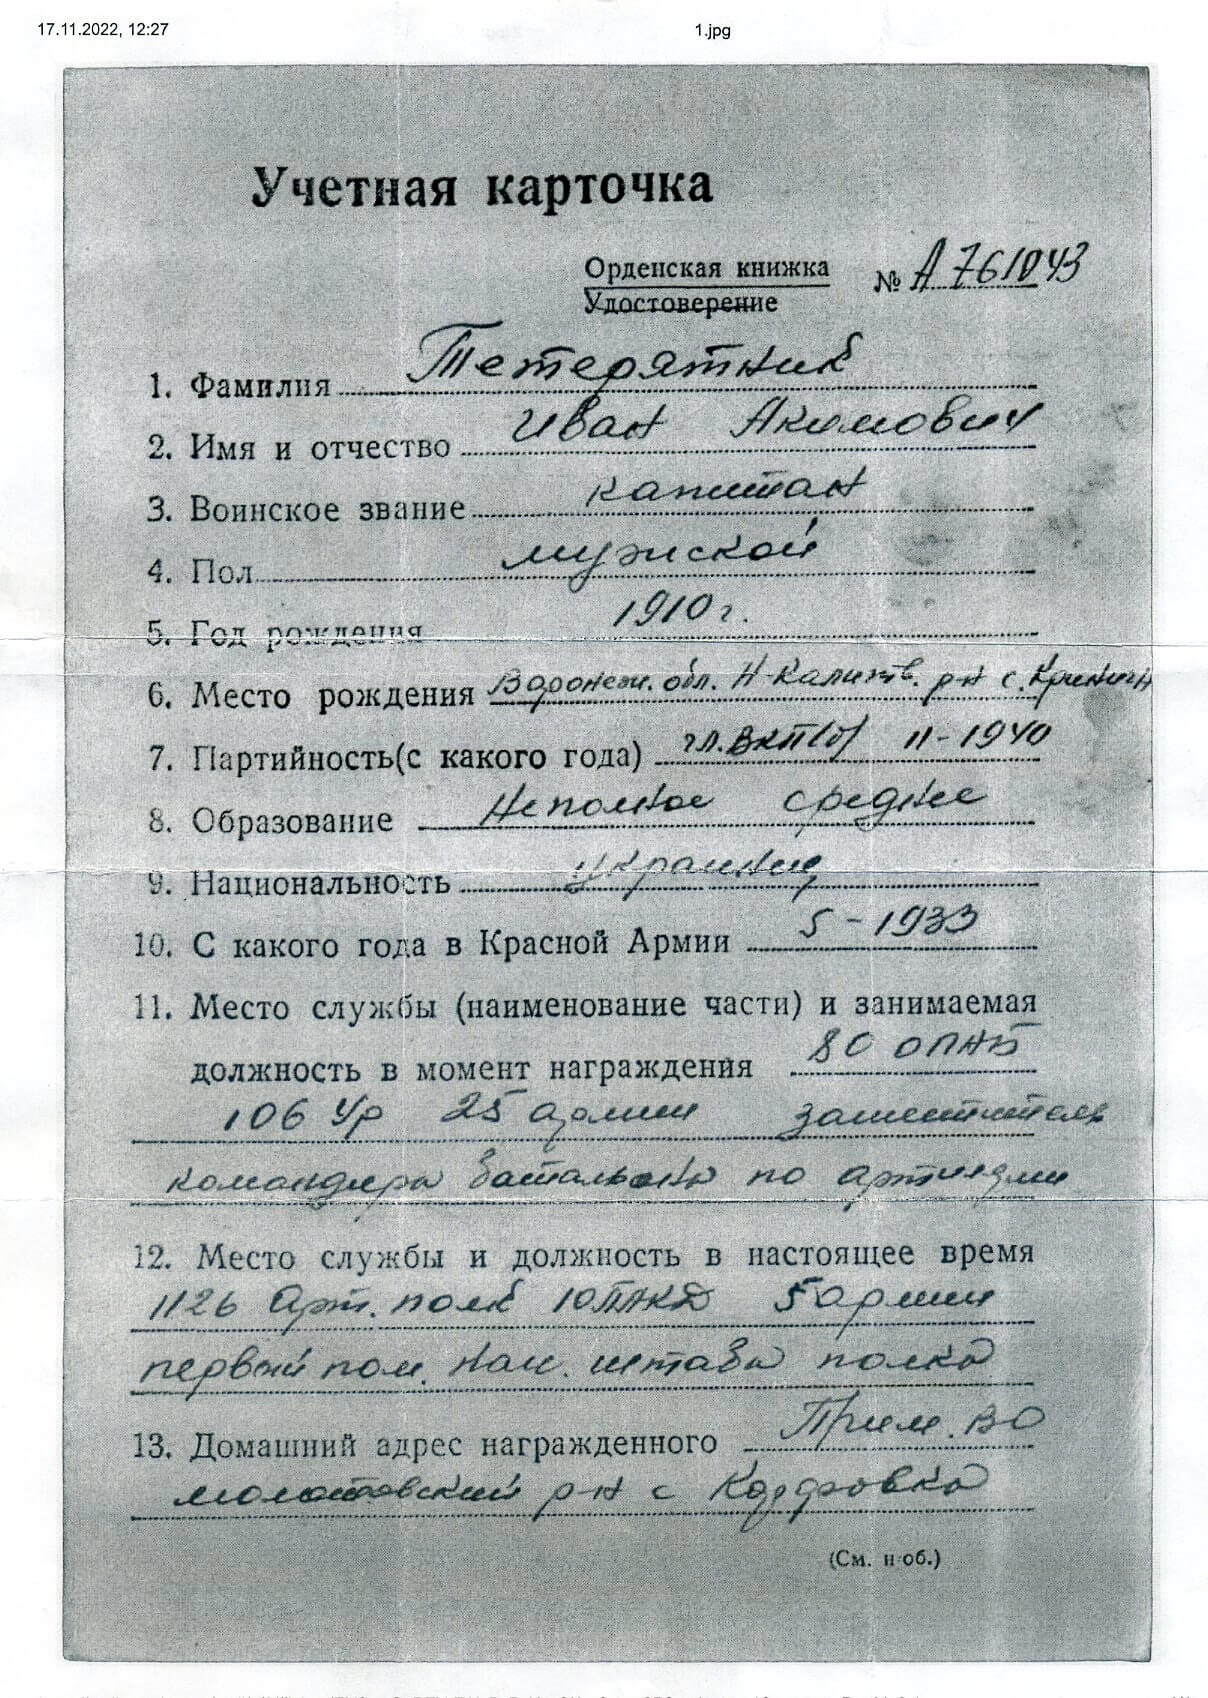 17.11.2022, 12:27 1.jpg
Учетная карточка
Орденская книжка № А 761043
Удостоверение
1. Фамилия Тетерятник
2. Имя и отчество Иван Акимович
3. Воинское звание капитан
4. Пол мужской
5. Год рождения 1910 г.
6. Место рождения Воронеж. обл. Н-Калитв. р-н с.
7. Партийность(с какого года) чл. ВКП(б) II-1940
8. Образование Неполное среднее
9. Национальность украинец
10. С какого года в Красной Армии 5-1933
11. Место службы (наименование части) и занимаемая
должность в момент награждения 80 ОПАБ
106 Ур 25 армии заместитель
командира батальона по
12. Место службы и должность в настоящее время
1126 Арт. полк 5 армии
первый пом. нач. штаба полка
13. Домашний адрес награжденного Прим. ВО
молотовский р-н с
(См. н об.)